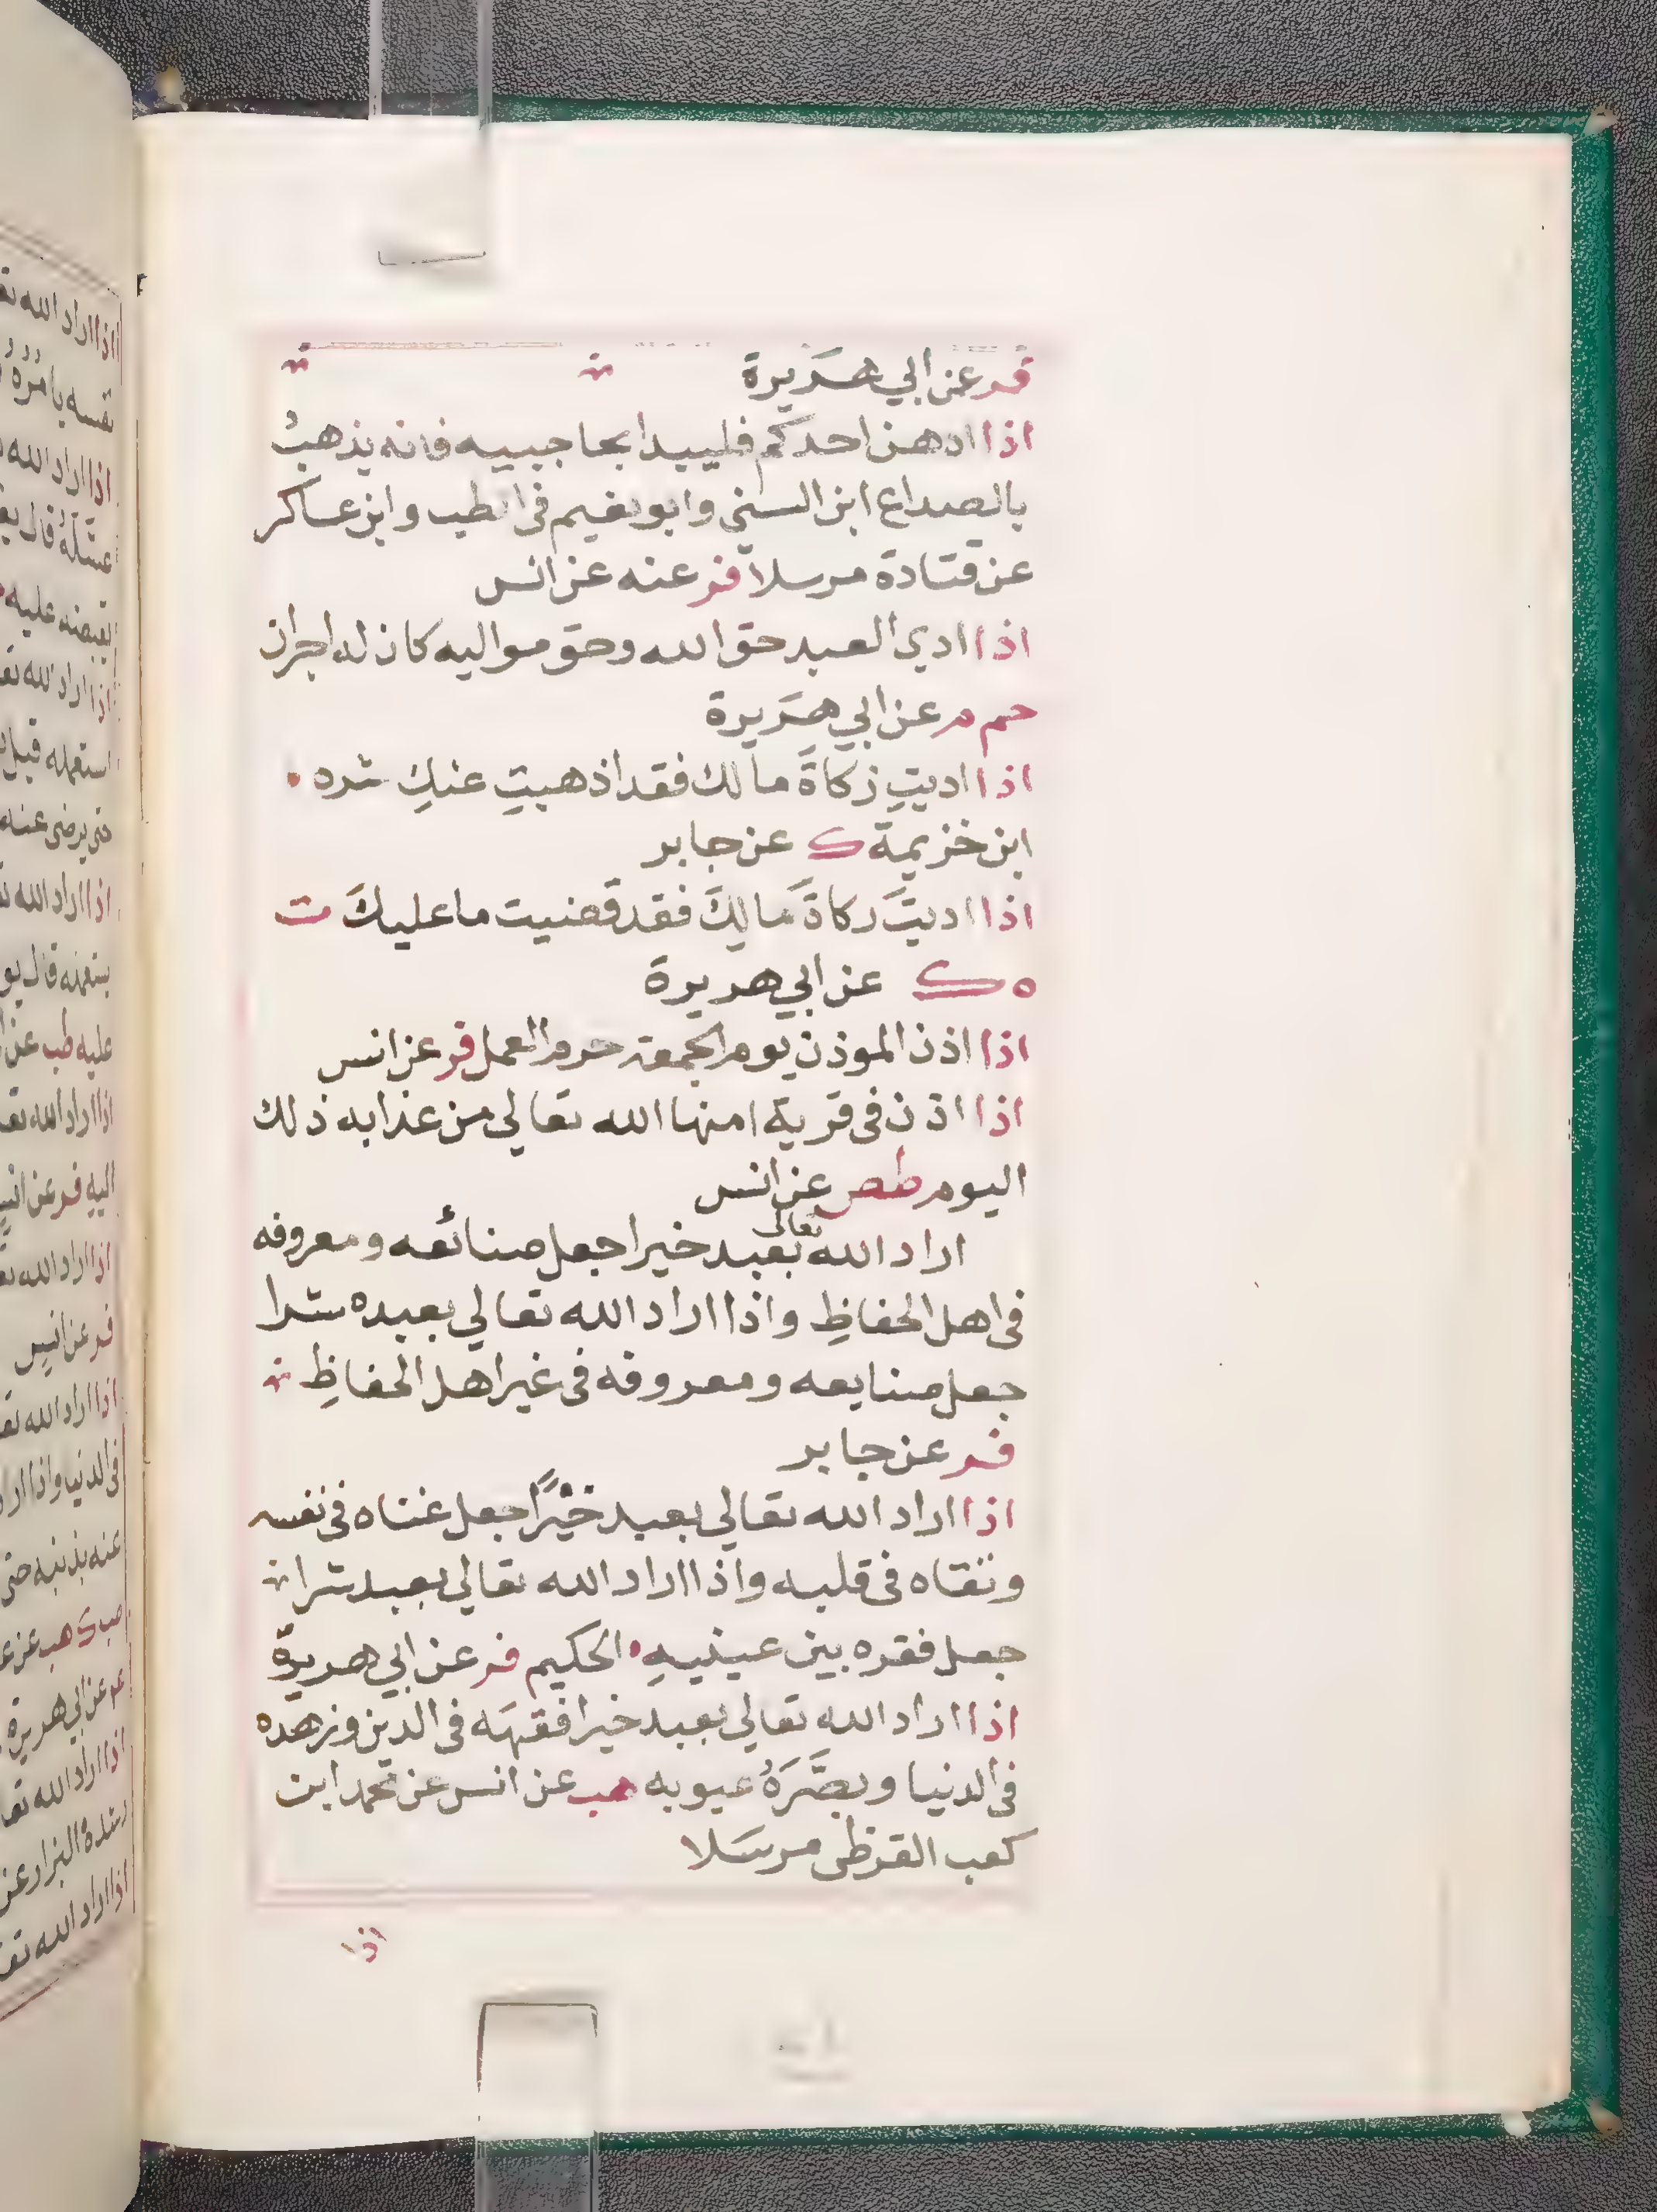 فر عن ابي هَرَيرة
اذا ادهن احدكم فليبدا بحاجبيه فانه يذهبُ
بالصداع ابن السني وابو نعيم في الطب وابن عساكر
عن قتادة مرسلا فر عنه عن انس
اذا ادي العبد حق الله وحق مواليه كان له اجران
حم م عن ابي هَرَيرة
اذا اديتِ زكاةَ مالك فقد اذهبتِ عنكِ شره
ابن خزيمة ك عن جابر
اذا اديتَ ركاةَ مَالِكَ فقد قضيت ما عليكَ ت
ه ك عن ابي هريرة
اذا اذن الموذن يوم الجمعة حرم العمل فر عن انس
اذا اذن في قرية امنها الله تعالي من عذابه ذلك
اليوم طص عن انس
اراد الله تعالى بعبد خيرا جعل صنائعه ومعروفه
في اهل الحفاظِ واذا اراد الله تعالي بعبده شرا
جعل صنايعه ومعروفه في غير اهل الحفاظِ
فر عن جابر
اذا اراد الله تعالي بعبد خيْرًا جعل غناه في نفسه
وتقاه في قلبه واذا اراد الله تعالي بعبد شرا
جعل فقره بين عينيهِ الحكيم فر عن ابي هريرة
اذا اراد الله تعالي بعبد خيرا فقهَه في الدين وزهده
في الدنيا وبصَّرَهُ عيوبه هب عن انس عن محمد ابن
كعب القرظي مرسَلا
اذا